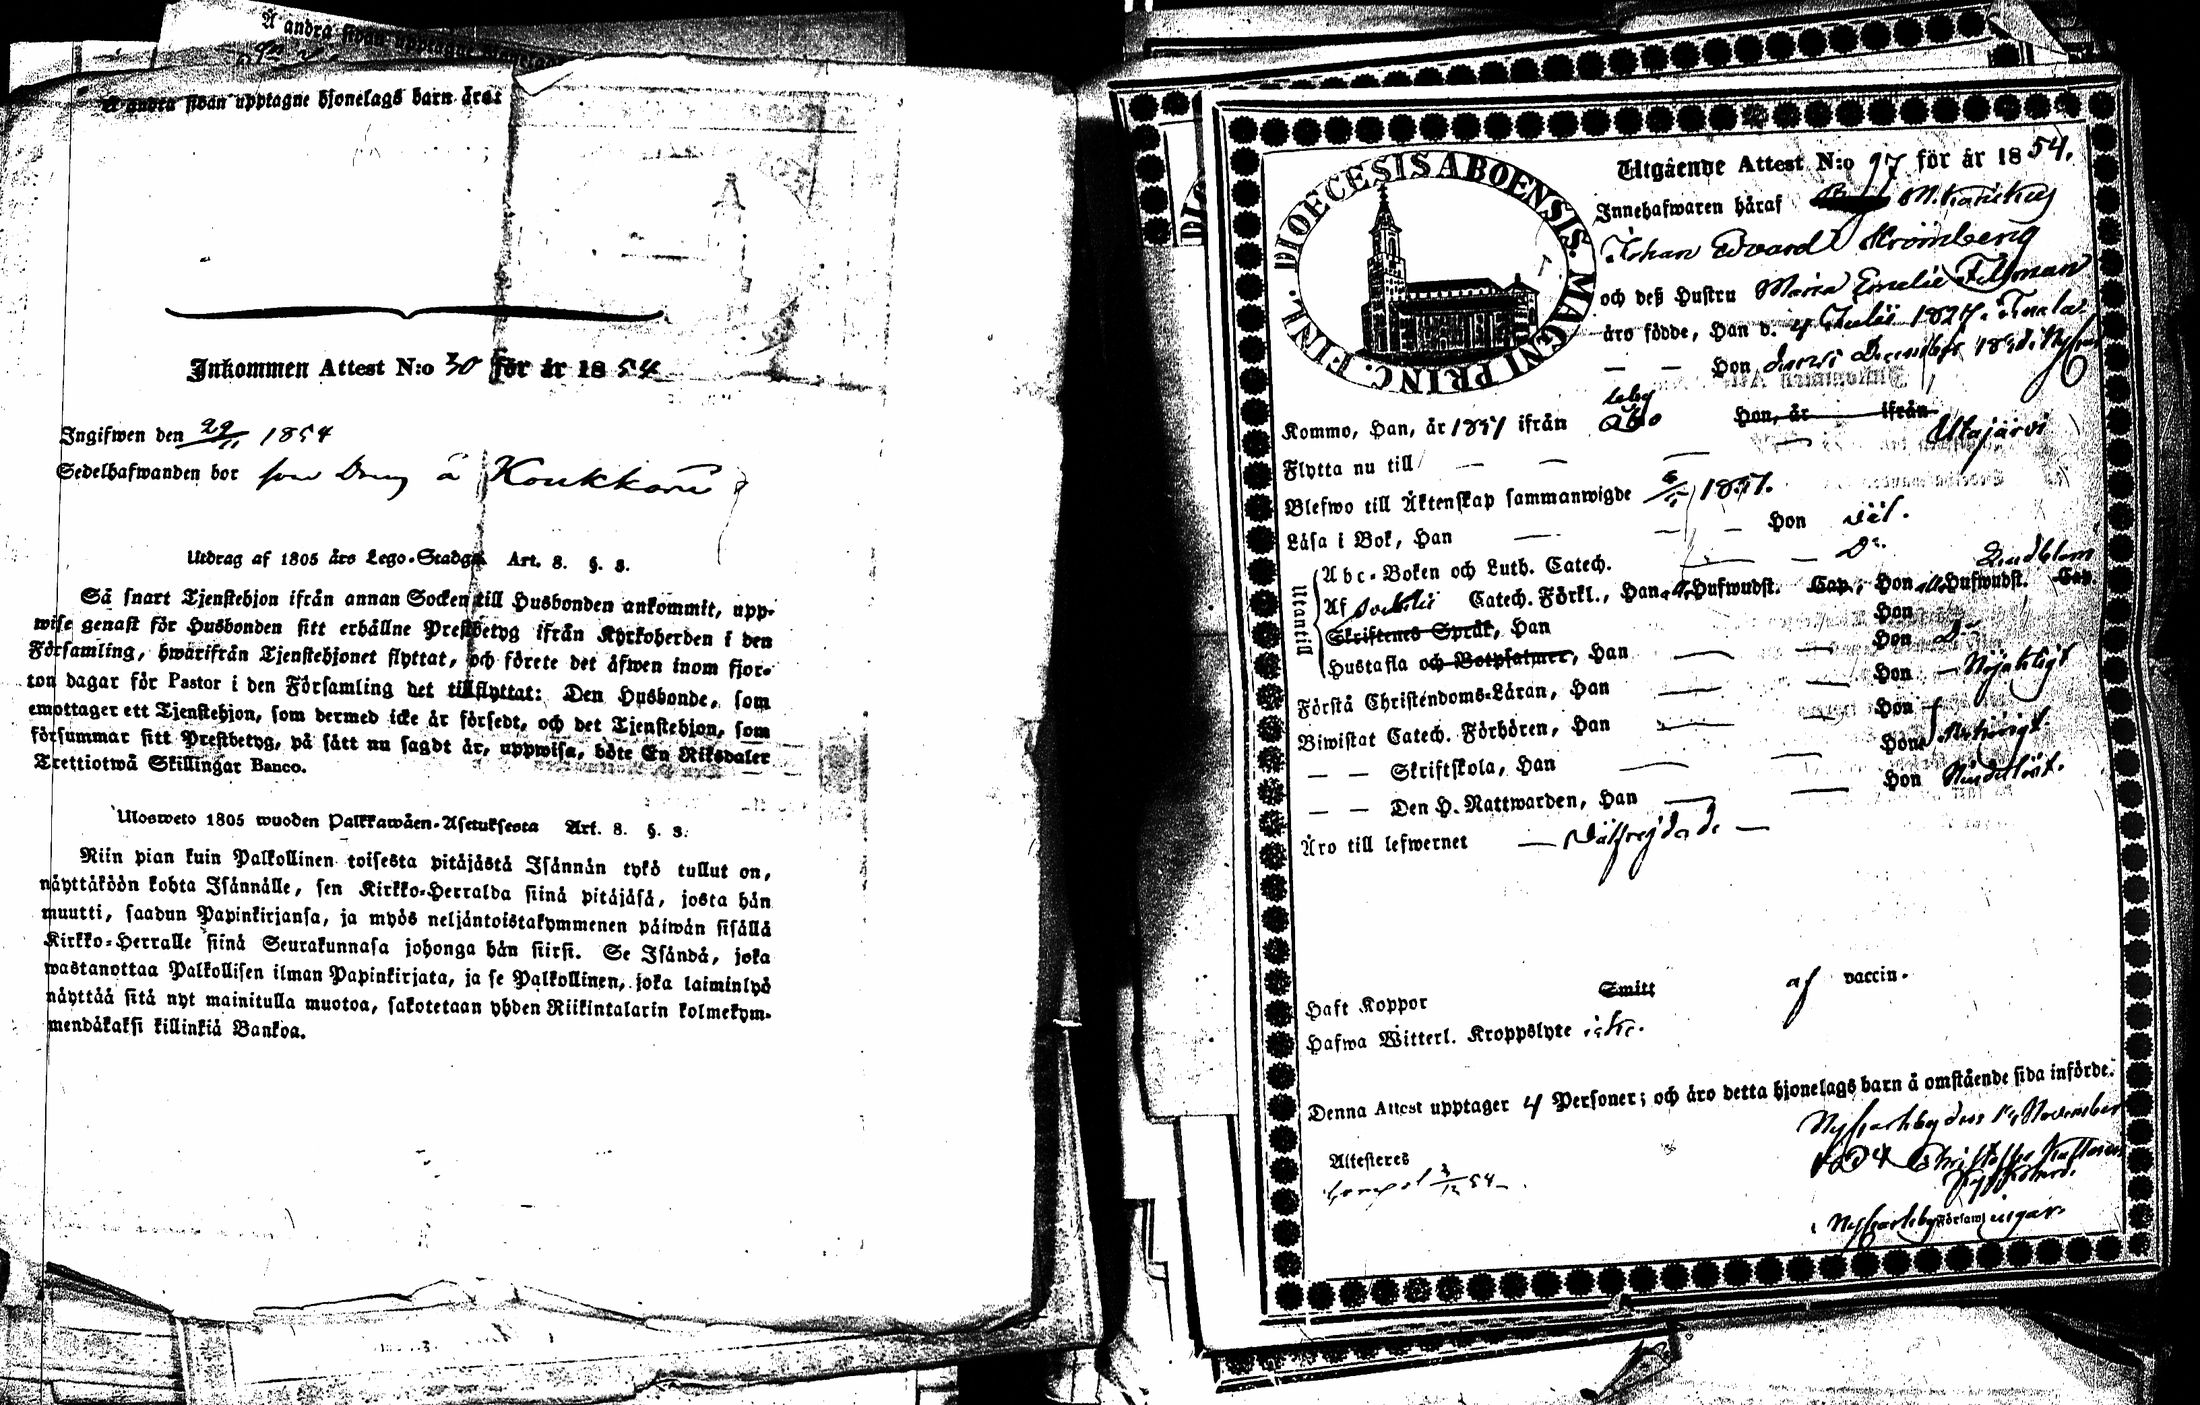 Å andra sidan upptagne
Å andra sidan upptagne hjonelags barn äro:
Inkommen Attest N:o 30 för år 1854
Ingifwen den 29/11 1854
Sedelhafwanden bor som Dreng å Koukkari
Utdrag af 1805 års Lego-Stadga Art. 8. §. 3.
Så snart Tjenstehjon ifrån annan Socken till Husbonden ankommit, upp-
wise genast för Husbonden sitt erhållne Prestbetyg ifrån Kyrkoherden i den
Församling, hwarifrån Tjenstehjonet flyttat, och förete det äfwen inom fjor-
ton dagar för Pastor i den Församling det tillflyttat: Den Husbonde, som
emottager ett Tjenstehjon, som dermed icke är försedt, och det Tjenstehjon, som
försummar sitt Prestbetyg, på sätt nu sagdt är, uppwisa, böte En Riksdaler
Trettiotwå Skillingar Banco.
Ulosweto 1805 wuoden Palkkawäen-Asetuksesta Art. 8. §. 3.
Niin pian kuin Palkollinen toisesta pitäjästä Isännän tykö tullut on,
näyttäköön kohta Isännälle, sen Kirkko-Herralda siinä pitäjäsä, josta hän
muutti, saadun Papinkirjansa, ja myös neljäntoistakymmenen päiwän sisällä
Kirkko-Herralle siinä Seurakunnasa johonga hän siirsi. Se Isändä, joka
wastanottaa Palkollisen ilman Papinkirjata, ja se Palkollinen, joka laiminlyö
näyttää sitä nyt mainitulla muotoa, sakotetaan yhden Riikintalarin kolmekym-
mendäkaksi killinkiä Bankoa.
DIOECESIS ABOENSIS. MAGNI PRINC. FINL.
Utgående Attest N:o 97 för år 1854.
Innehafwaren häraf
Johan Edvard Strömberg
och deß Hustru Maria Emelie Felman
äro födde, Han d. 4 Julii 1827 i
— — Hon den December
Kommo, Han, år 1851 ifrån Åbo Hon, år ifrån
Flytta nu till — — — Utajärvi
Blefwo till Äktenskap sammanwigde 1851.
Läsa i Bok, Han — — Hon väl.
Utantill
Abc-Boken och Luth. Catech. — — Do.
Af Catech. Förkl., Han Hufwudst. Cap., Hon Hufwudst. Cap
Skriftenes Språk, Han Hon
Hustafla och Botpsalmer, Han — — Hon Do
Förstå Christendoms-Läran, Han — — Hon — Nöjaktigt
Biwistat Catech. Förhören, Han — — Hon
— — Skriftskola, Han — — Hon
— — Den H. Nattwarden, Han — — Hon
Äro till lefwernet — Välfrejdade —
Haft Koppor Smitt af vaccin.
Hafwa Witterl. Kroppslyte icke.
Denna Attest upptager 4 Personer; och äro detta hjonelags barn å omstående sida införde.
Nykarleby den 14 November
1854
Attesteres
3/12 54
i Nykarleby Församlingar.